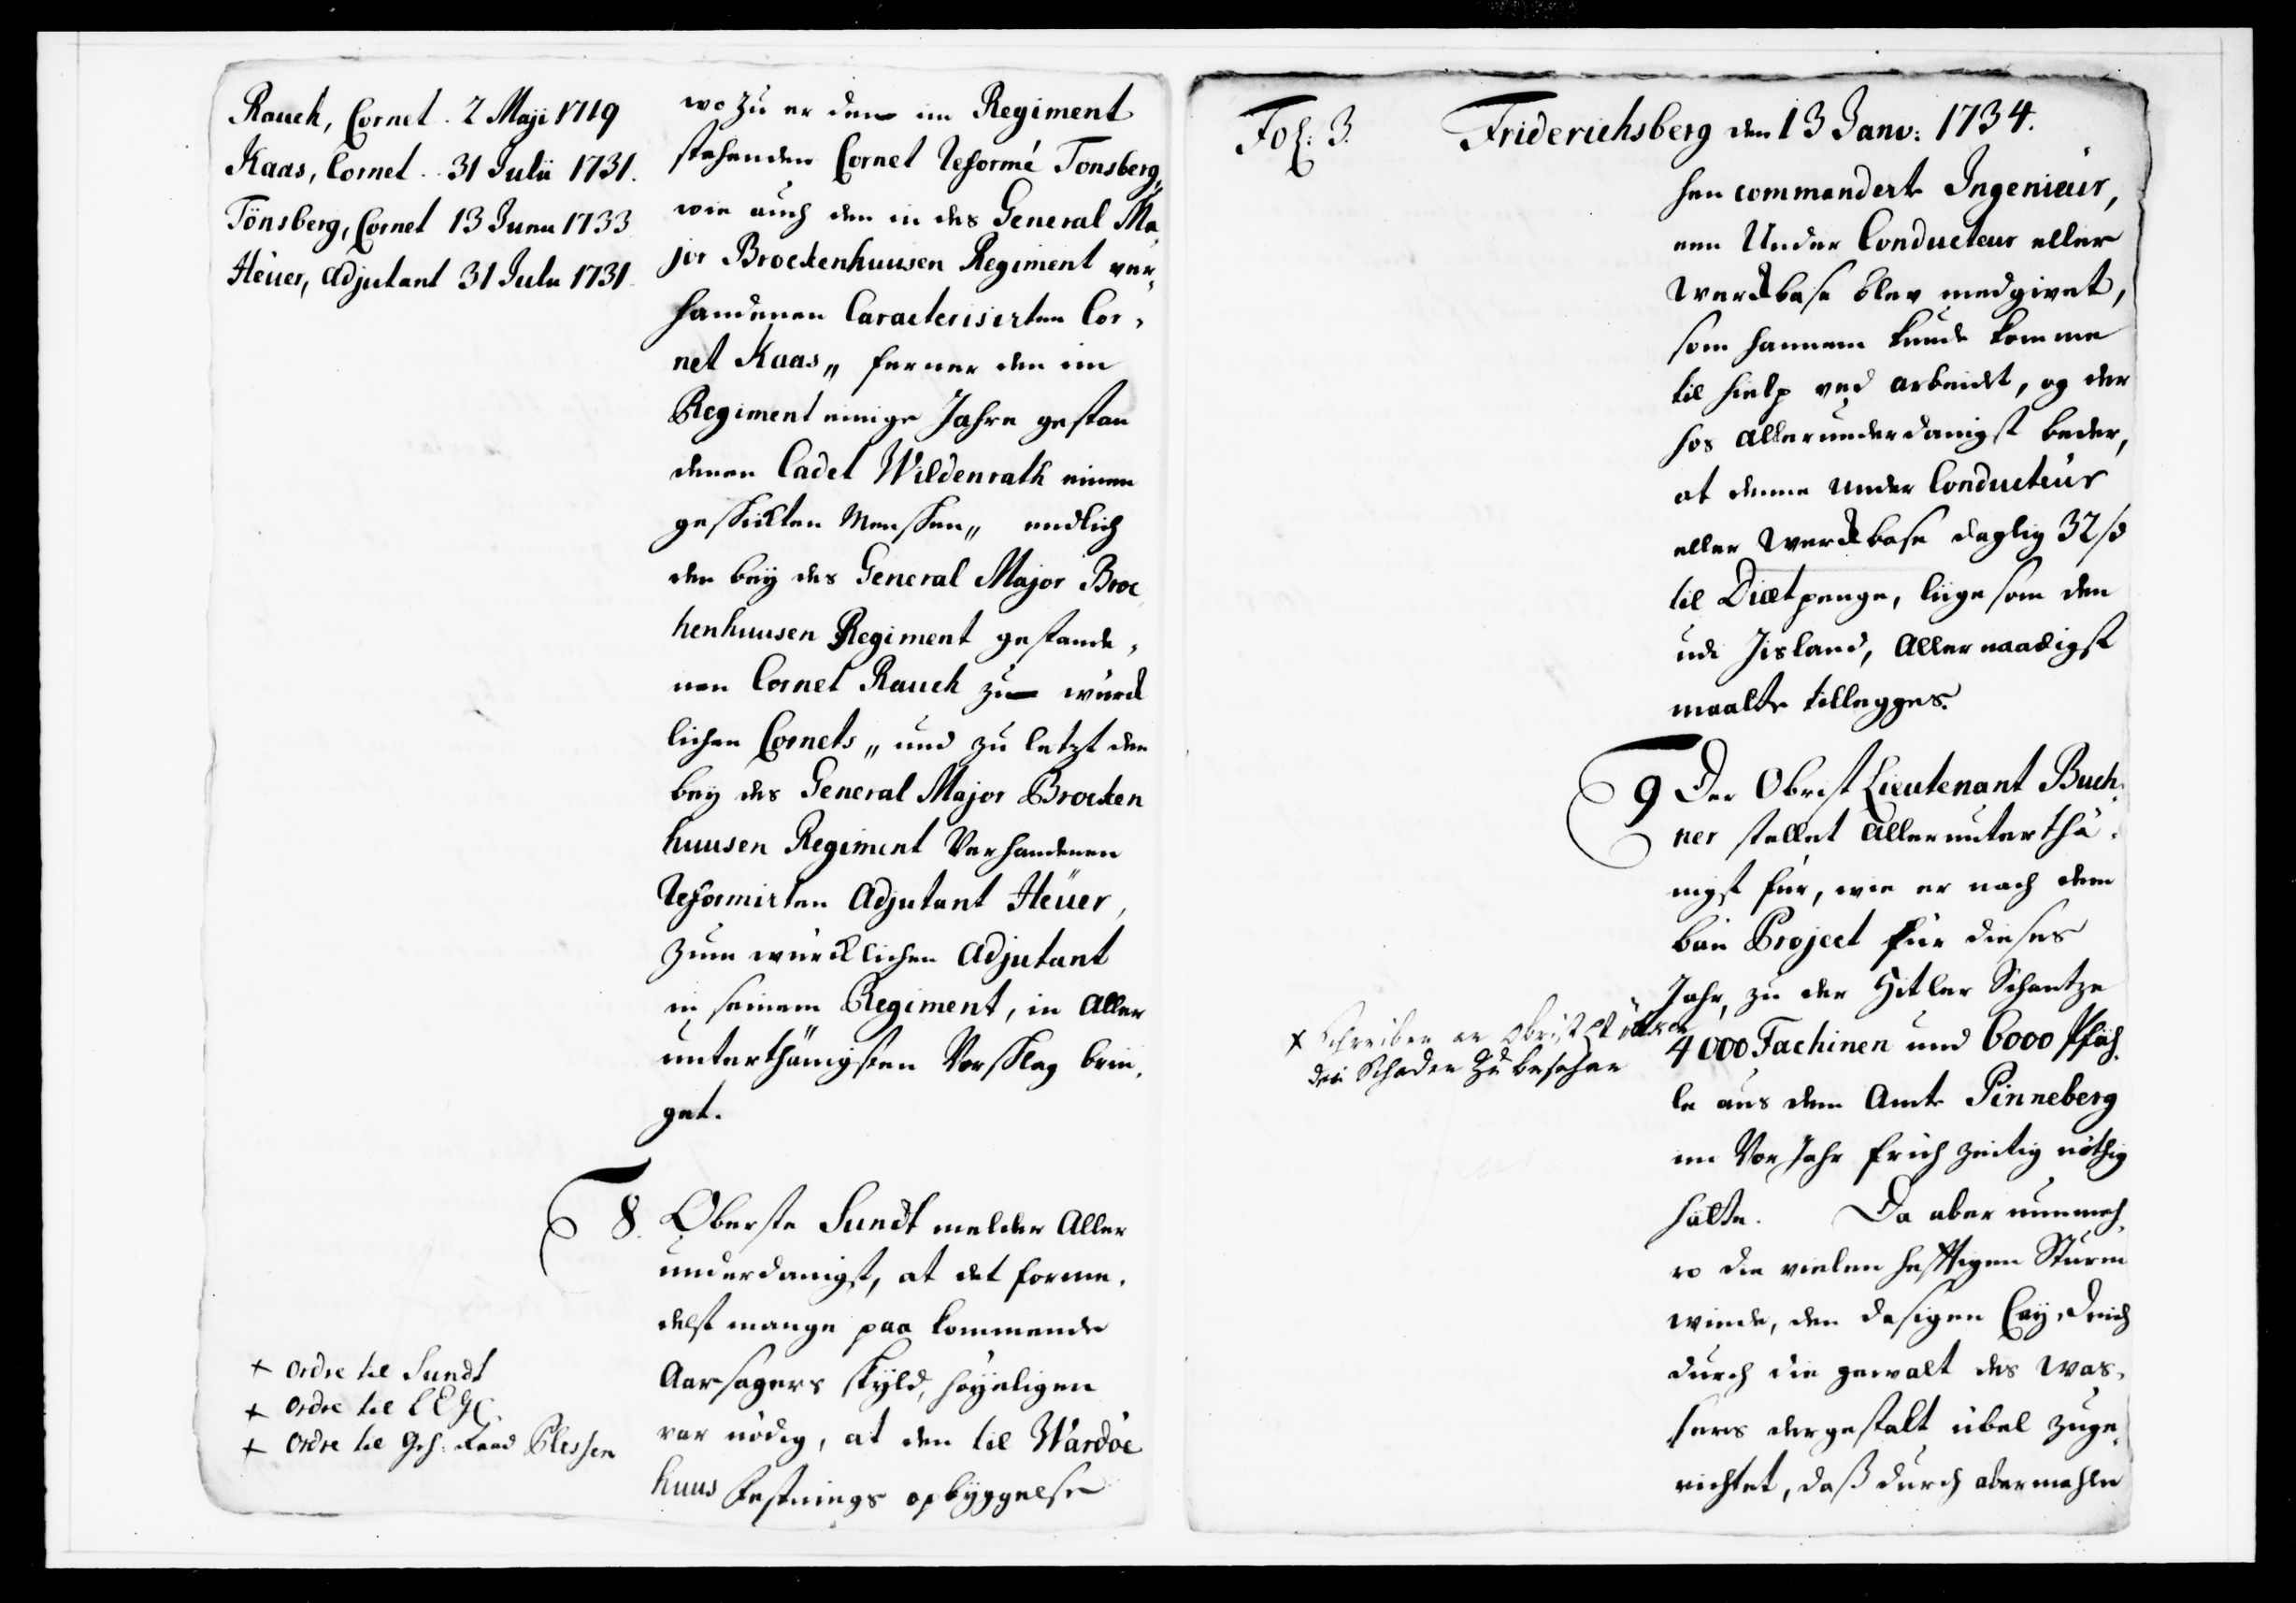 Rauch, Cornet. 2 Maji 1719
Kaas, Cornet. 31 Julii 1731.
Tönsberg, Cornet 13 Junii 1733
Heüer, Adjutant 31 Julii 1731.
wo zu er den im Regiment
stehenden Cornet Reformé Tonsberg,
wie auch den in des General Ma,
jor Brockenhuusen Regiment vor,
handenen Caracterisirten Cor,
net Kaas,, ferner den im
Regiment einige Jahre gestan
denen Cadet Wildenrath einen
geschickten Menschen,, endlich
den beÿ des General Major Broc
kenhuusen Regiment gestande,
nen Cornet Rauch zu würck
lichen Cornets,, und zu letzt den
beÿ des General Major Brocken
huusen Regiment Verhandenen
Reformirten Adjutant Heüer,
zum würcklichen Adjutant
in seinem Regiment, in Aller
unterthänigsten Vorschlag brin,
get.
8. Oberste Sundt melder Aller
underdanigst, at det forme,
delst mange paa kommende
Aarsagers skÿld, höÿeligen
var nödig, at den til Wardöe
huus Festnings opbÿggelse
+ Ordre til Sundt
+ Ordre til
+ Ordre til Geh: Raad Plessen
Fol: 3.
Friderichsberg den 13 Janv: 1734.
hen commanderte Ingenieur,
een Under Conducteur eller
Werckbase blev medgivet,
som hannem kunde komme
til hielp ved arbeidet, og der
hos allerunderdanigst beder,
at denne Under Conducteur
eller Werckbase daglig 32 ß
til Diætpenge, liige som den
udi Jisland, Allernaadigst
maatte tillegges.
9 Der Obrist Lieutenant Buch,
ner stellet Allerunterthä,
nigst für, wie er nach dem
bau Project für dieses
Jahr, zu der Hitler Schantze
4000 Fachinen und 6000 Pfäh,
le aus dem Amte Pinneberg
im Vor Jahr früh zeitig nöthig
hätte. Da aber nunmeh,
ro die vielen hefftigen Sturm
winde, den dasigen Caÿ, Deich
durch die gewalt des Was,
sers dergestalt übel zuge,
richtet, daß durch abermahln
+ Schreiben an Obrist Lt
den Schaden zu besehen